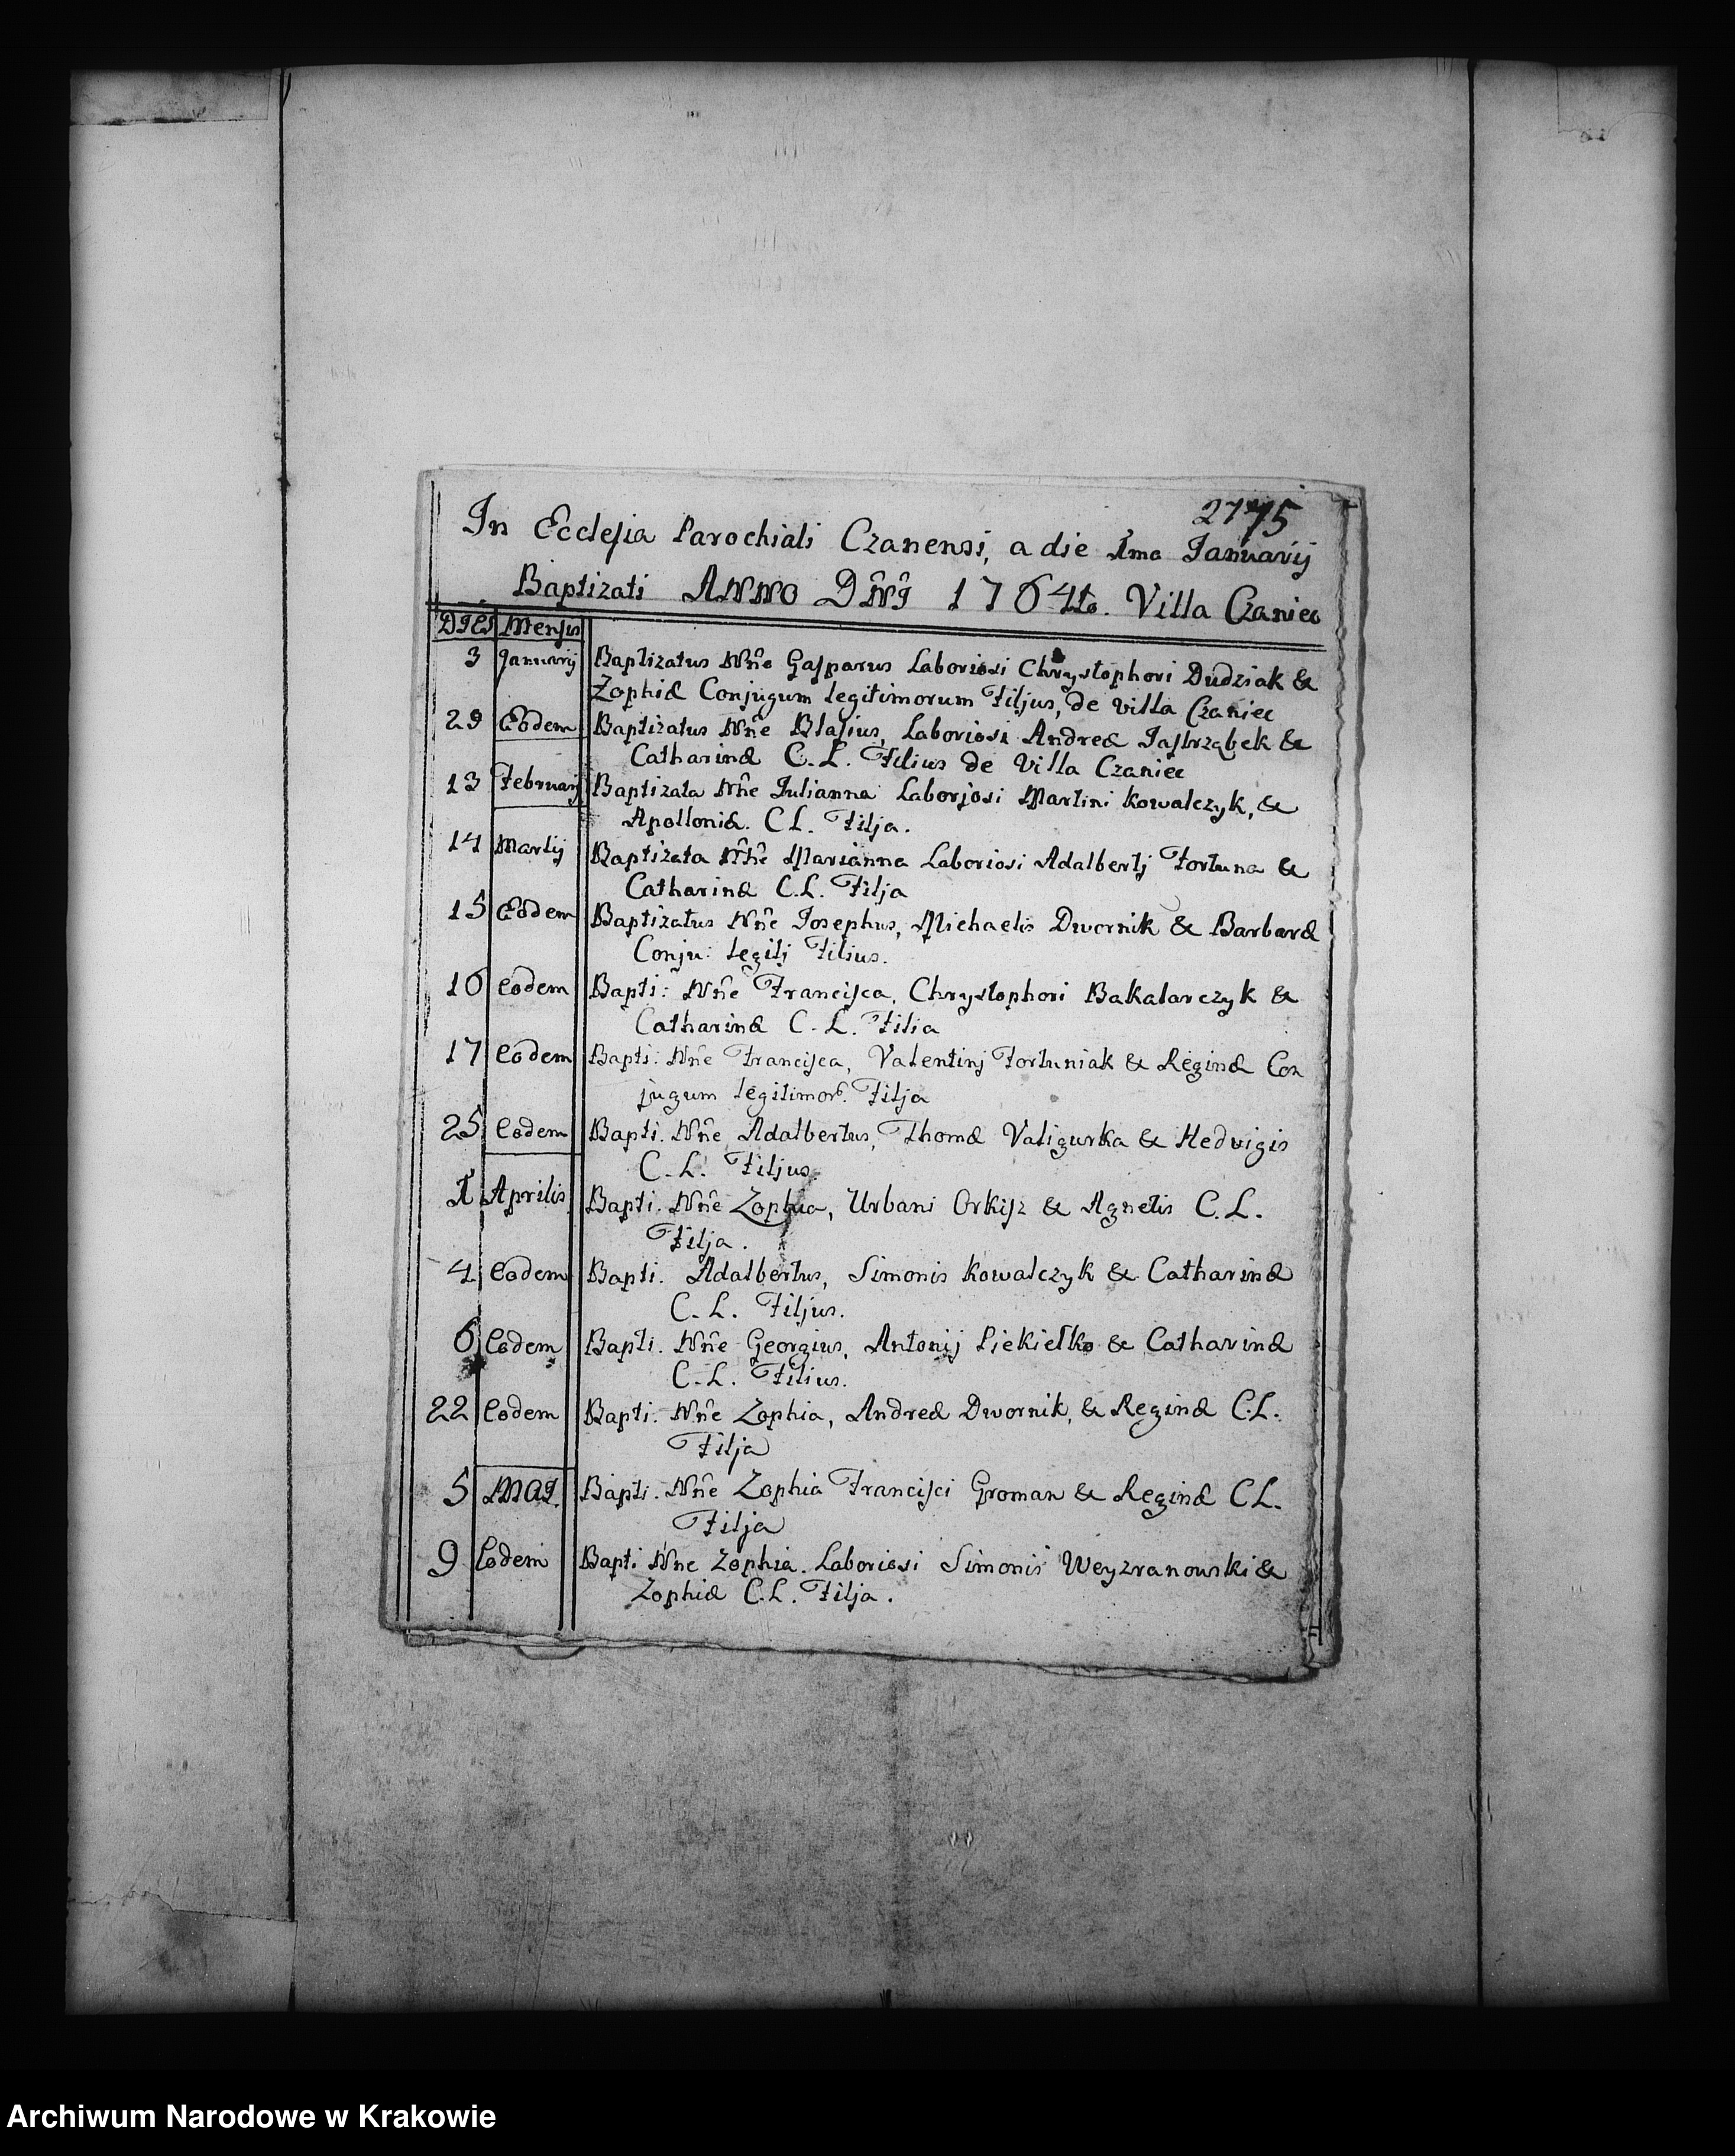 2775
In Ecclesia Parochiali Czanensi, a die 1ma Ianuarij
Baptizati ANNO DNI 1764to. Villa Czaniec
DIES Mensis
3 Januarij Baptizatus Nñe Gasparus Laboriosi Chrystophori Dudziak &
Zophiæ Conjugum legitimorum Filjus, de villa Czaniec
29 Eodem Baptizatus Nñe Blasius, Laboriosi Andreæ Jastrząbek &
Catharinæ C. L. Filius de Villa Czaniec
13 Februarij Baptizata Nñe Iulianna Laborjosi Martini Kowalczyk, &
Apolloniæ. C L. Filja.
14 Martij Baptizata Nñe Marianna Laboriosi Adalbertj Fortuna &
Catharinæ C.L. Filja
15 Eodem Baptizatus Nñe Josephus, Michaelis Dwornik & Barbaræ
Conju: legitj Filius.
16 Eodem Bapti: Nñe Francisca, Chrystophori Bakalarczyk &
Catharinæ C. L. Filia
17 Eodem Bapti: Nñe Francisca, Valentinj Fortuniak & Reginæ Con
jugum legitimor. Filja
25 Eodem Bapti. Nñe, Adalbertus, Thomæ Valigurka & Hedvigis
C. L. Filjus.
1 Aprilis Bapti. Nñe Zophia, Urbani Orkisz & Agnetis C. L.
Filja.
4 Eodem Bapti. Adalbertus, Simonis Kowalczyk & Catharinæ
C. L. Filjus.
6 Eodem Bapti. Nñe Georgius, Antonij Piekiełko & Catharinæ
C. L. Filius.
22 Eodem Bapti. Nñe Zophia, Andreæ Dwornik, & Reginæ C.L.
Filja
5 MAI. Bapti. Nñe Zophia Francisci Groman & Reginæ C L.
Filja
9 Eodem Bapti Nñe Zophia. Laboriosi Simonis Weyzranowski &
Zophiæ C.L. Filja.
Archiwum Narodowe w Krakowie